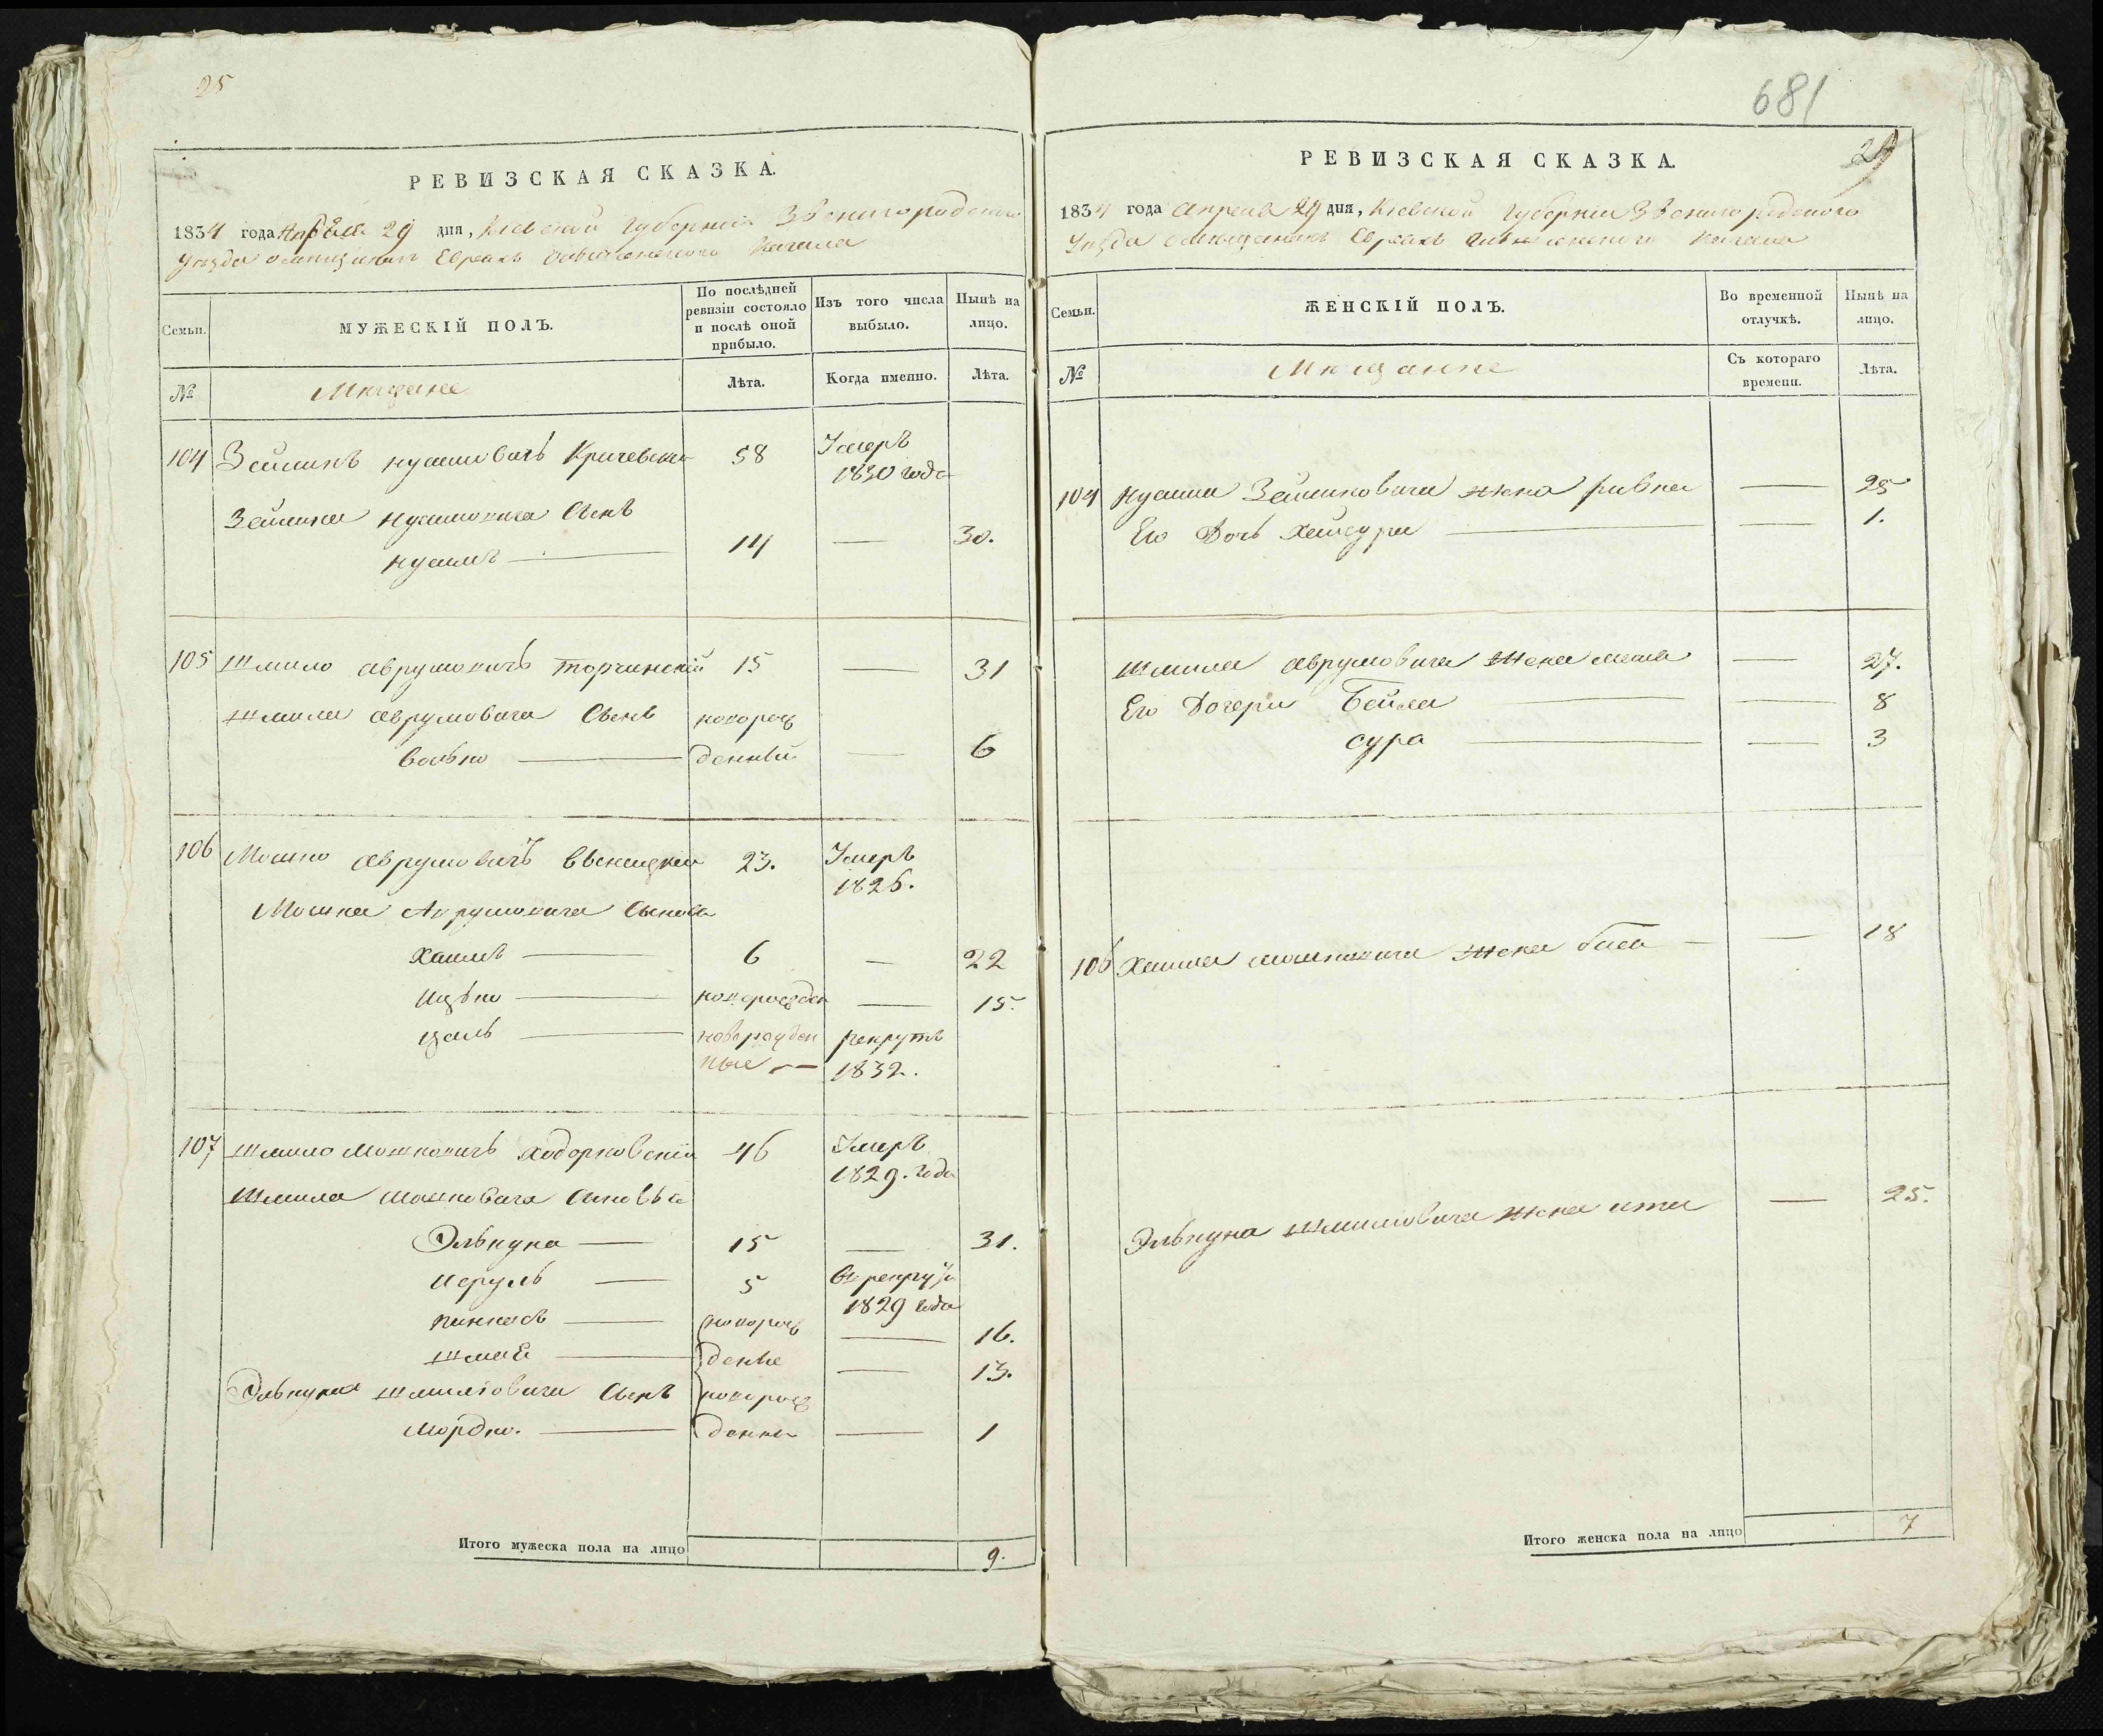 25
РЕВИЗСКАЯ СКАЗКА.
1834 года Апреля 29 дня, Кіевской Губерніи Звенигородского
Уезда о мещанахъ Евреахъ Кагала
Семьи.
МУЖЕСКІЙ ПОЛЪ.
По послѣдней ревизіи состояло и послѣ оной прибыло.
Изъ того числа выбыло.
Нынѣ на лицо.
№
Мещане
Лѣта.
Когда именно.
Лѣта.
104 Зейликъ Нусимовичъ Кричевски 58 Умеръ
1830 года
Зейлика Нусимовича Сынъ
Нусимъ 14 — 30.
105 Шмило Аврумовичъ Торчинскій 15 — 31
Шмила Аврумовича Сынъ новорож
Волько денный — 6
106 Мошко Аврумовичъ 23. Умеръ
1826.
Мошка Аврумовича Сыновья
Хаимъ 6 — 22
Ицько новорожден — 15.
новорожден рекрутъ
ные — 1832.
107 Шмило Мошковичъ Ходорковскій 46 Умеръ
1829. года
Шмила Мошковича Сыновья
Элькуна — 15 — 31.
Исруль — 5 въ рекруты
1829 года
Пинкасъ — новорож — 16.
денные — 13.
Элькуна Шмиловича Сынъ новорож
Мордко. — денны — 1
Итого мужеска пола на лицо 9.
681
29
РЕВИЗСКАЯ СКАЗКА.
1834 года Апреля 29 дня, Кіевской Губерніи Звенигородского
Уезда о мещанахъ Евреахъ Кагала
Семьи.
ЖЕНСКІЙ ПОЛЪ.
Во временной отлучкѣ.
Нынѣ на лицо.
№
Мещанне
Съ котораго времени.
Лѣта.
104 Нусима Зейликовича жена Ривка — 25
Его Дочь Хайсура — 1.
Шмила Аврумовича Жена — 27.
Его Дочери Бейла — 8
Сура — 3
106 Хаима Мошковича Жена Бася — 18
Элькуна Шмиловича жена Ита — 25.
Итого женска пола на лицо 7